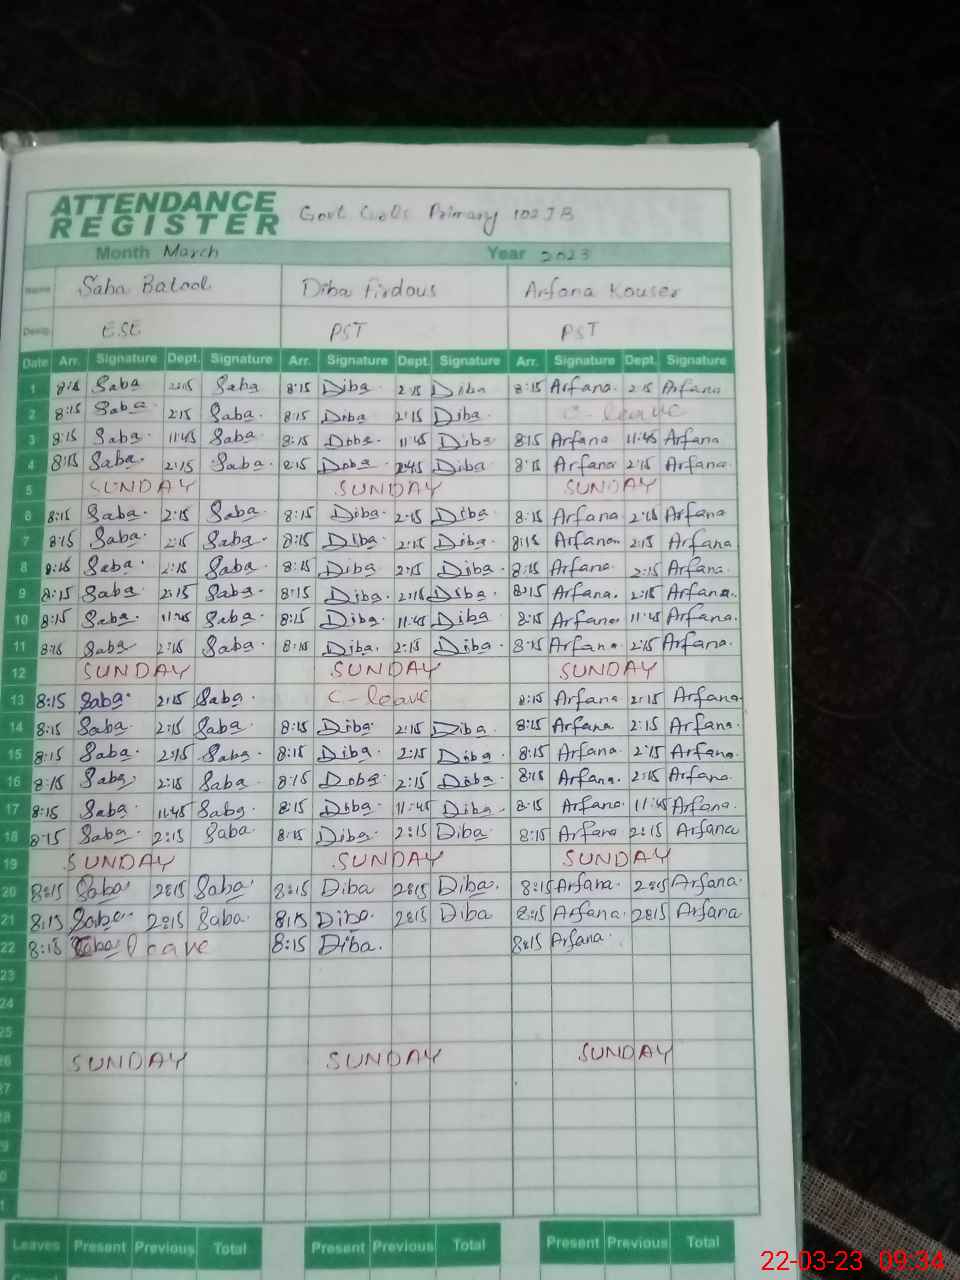 ATTENDANCE
REGISTER Govt Girls Primary 102 JB
Month March Year 2023
Name Saba Batool Diba Firdous Arfana Kouser
Desig. ESE PST PST
Date Arr. Signature Dept. Signature Arr. Signature Dept. Signature Arr. Signature Dept. Signature
1 8:15 Saba 2:15 Saba 8:15 Diba 2:15 Diba 8:15 Arfana. 2:15 Arfana
2 8:15 Saba 2:15 Saba. 8:15 Diba 2:15 Diba. C-leave
3 8:15 Saba. 11:45 Saba. 8:15 Diba. 11:45 Diba 8:15 Arfana 11:45 Arfana
4 8:15 Saba. 2:15 Saba. 8:15 Diba 2:45 Diba 8:15 Arfana 2:15 Arfana.
5 SUNDAY SUNDAY SUNDAY
6 8:15 Saba. 2:15 Saba. 8:15 Diba. 2:15 Diba 8:15 Arfana 2:15 Arfana
7 8:15 Saba. 2:15 Saba. 8:15 Diba 2:15 Diba. 8:15 Arfana 2:15 Arfana
8 8:15 Saba. 2:15 Saba. 8:15 Diba 2:15 Diba. 8:15 Arfana. 2:15 Arfana.
9 8:15 Saba. 2:15 Saba. 8:15 Diba. 2:15 Diba. 8:15 Arfana. 2:15 Arfana.
10 8:15 Saba. 11:45 Saba. 8:15 Diba. 11:45 Diba 8:15 Arfana 11:45 Arfana.
11 8:15 Saba 2:15 Saba. 8:15 Diba. 2:15 Diba. 8:15 Arfana 2:15 Arfana.
12 SUNDAY SUNDAY SUNDAY
13 8:15 Saba. 2:15 Saba. C-leave 8:15 Arfana 2:15 Arfana.
14 8:15 Saba. 2:15 Saba. 8:15 Diba. 2:15 Diba. 8:15 Arfana. 2:15 Arfana.
15 8:15 Saba. 2:15 Saba. 8:15 Diba. 2:15 Diba 8:15 Arfana. 2:15 Arfana.
16 8:15 Saba 2:15 Saba. 8:15 Diba. 2:15 Diba 8:15 Arfana. 2:15 Arfana.
17 8:15 Saba. 11:45 Saba. 8:15 Diba. 11:45 Diba. 8:15 Arfana. 11:45 Arfana.
18 8:15 Saba. 2:15 Saba. 8:15 Diba. 2:15 Diba. 8:15 Arfana 2:15 Arfana
19 SUNDAY SUNDAY SUNDAY
20 8:15 Saba 2:15 Saba 8:15 Diba 2:15 Diba. 8:15 Arfana. 2:15 Arfana.
21 8:15 Saba. 2:15 Saba. 8:15 Diba. 2:15 Diba 8:15 Arfana. 2:15 Arfana
22 8:15 leave 8:15 Diba. 8:15 Arfana.
23
24
25
26 SUNDAY SUNDAY SUNDAY
Leaves Present Previous Total Present Previous Total Present Previous Total
22-03-23 09:34